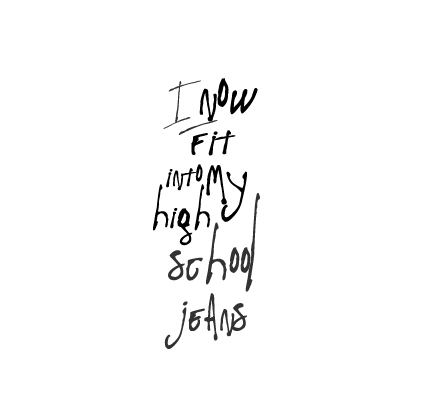 I NOW
FIT
INTO MY
high
school
jEANS